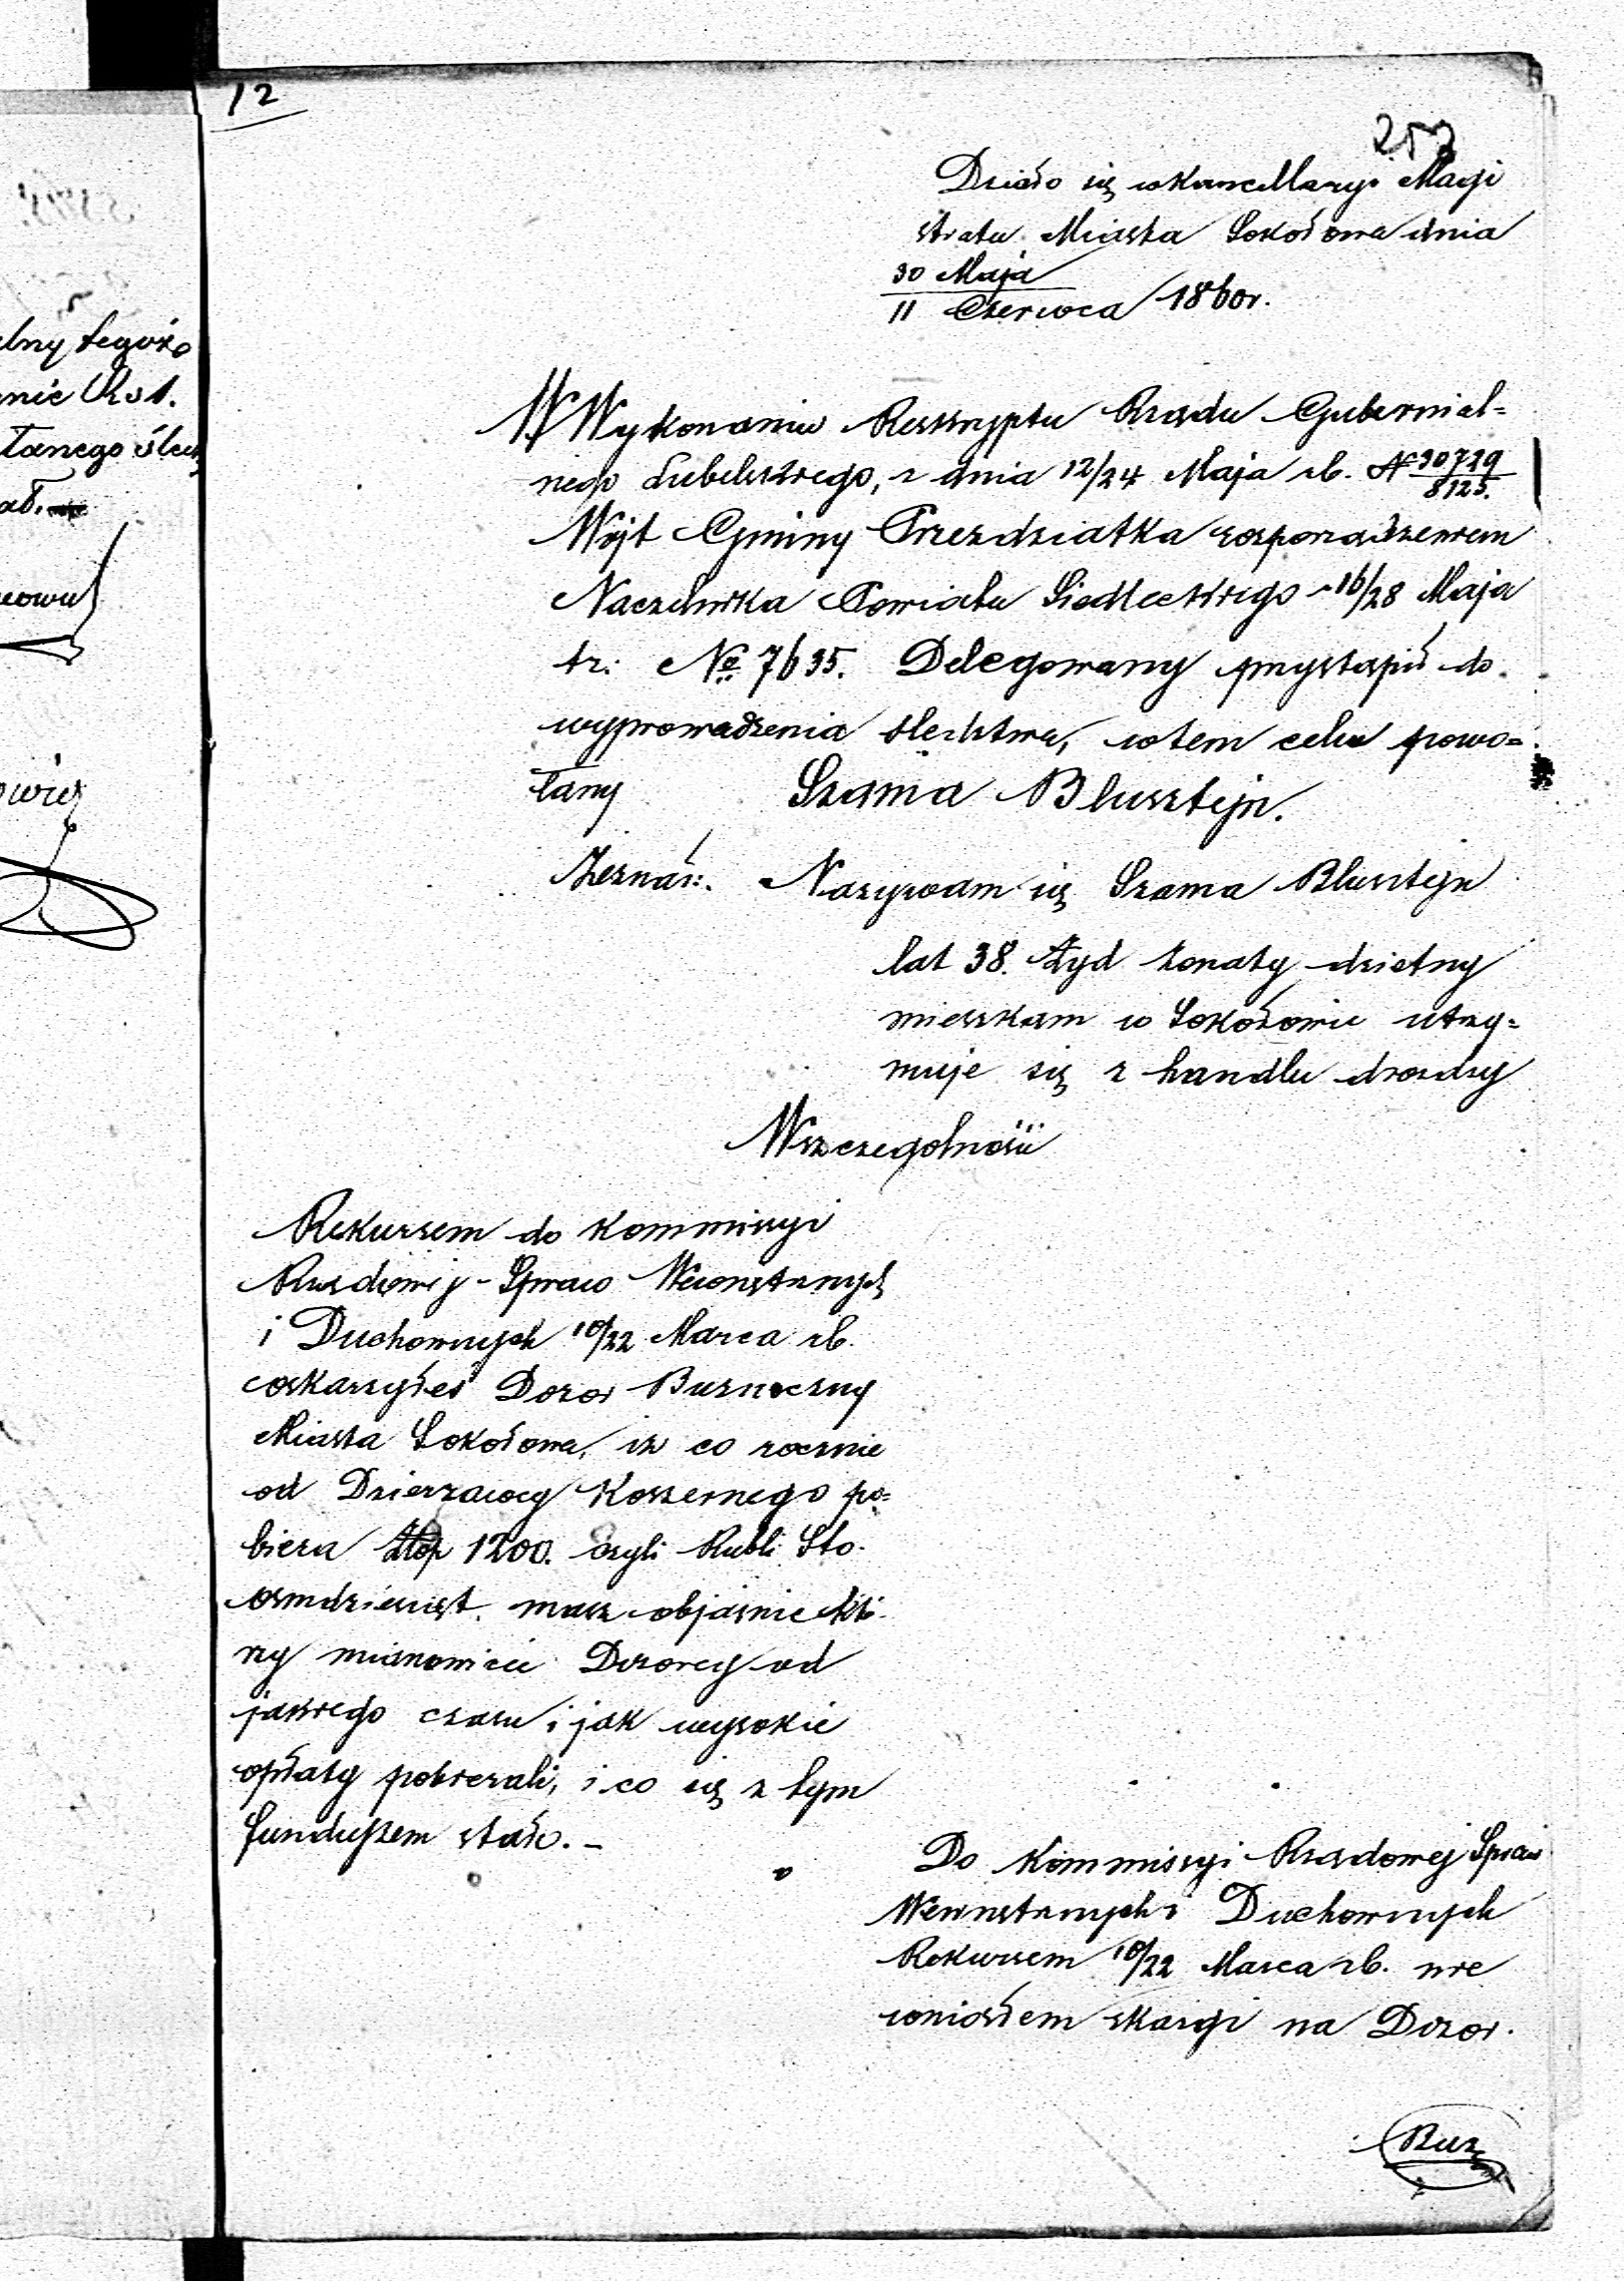 12
257
Działo się w Kancellaryi Magi
stratu Miasta Sokołowa dnia
30 Maja
11 Czerwca 1860r.
W Wykonaniu Reskryptu Rządu Gubernial=
nego Lubelskiego, z dnia 12/24 Maja rb. N 30729/8125.
Wójt Gminy Przezdziatka rozporządzeniem
Naczelnika Powiatu Siedleckiego 16/28 Maja
tr: No 7635. Delegowany przystąpił do
wyprowadzenia śledztwa, w tem celu powo=
łany Szama Blusztejn.
Zeznał:. Nazywam się Szama Blusztejn
lat 38. Żyd żonaty dzietny
mieszkam w Sokołowie utrzy=
muje się z handlu drozdzy
Wszczegolności
Rekursem do Kommissyi
Rządowej Spraw Wewnętrznych
i Duchownych 10/22 Marca rb.
oskarzyłeś Dozor Buzniczny
Miasta Sokołowa, iż co rocznie
od Dzierzawcy Koszernego po=
biera Złp 1200. czyli Rubli Sto
osmdziesiąt. masz objaśnic któ
rzy mianowicie Dozorcy od
jakiego czasu i jak wysokie
opłaty pobierali, i co się z tym
funduszem stało. –
Do Kommissyi Rządowej Spraw
Wewnętrznych i Duchownych
Rekursem 10/22 Marca rb. nie
wniosłem skargi na Dozor.
Buz
lny tegoż
nie Rs 1.
łanego śled
ał.